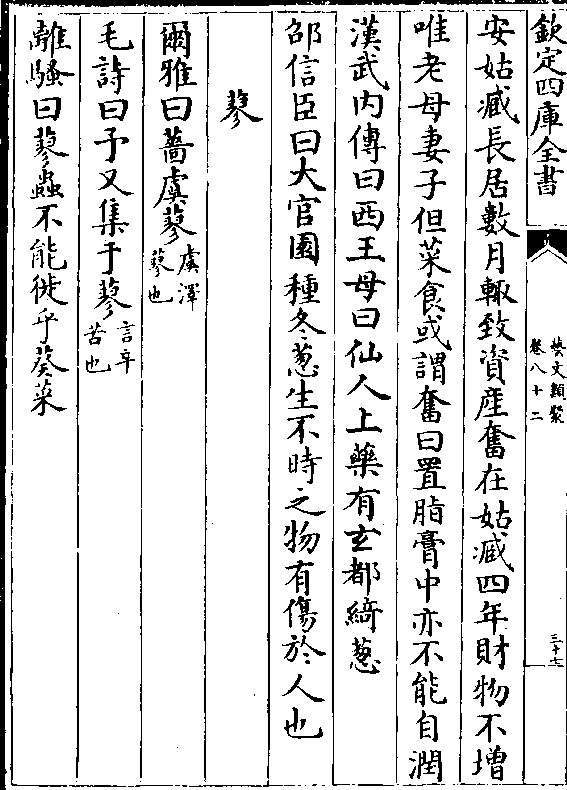 欽定四庫全書
藝文類聚
卷八十二
三十七
安姑臧長居數月輙致資產奮在姑臧四年財物不增
唯老母妻子但菜食或謂奮曰置脂膏中亦不能自潤
漢武內傳曰西王母曰仙人上藥有玄都綺葱
邵信臣曰大官園種冬葱生不時之物有傷於人也
蓼
爾雅曰薔虞蓼虞澤蓼也
毛詩曰予又集于蓼言辛苦也
離騷曰蓼蟲不能徙乎葵菜